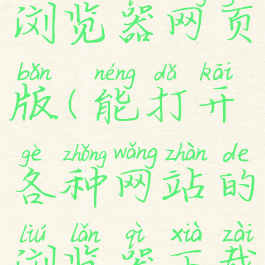 浏览器网页
bǎn néng dǎ kāi
版(能打开
gè zhǒng wǎng zhàn de
各种网站的
liú lǎn qì xià zài
浏览器下载